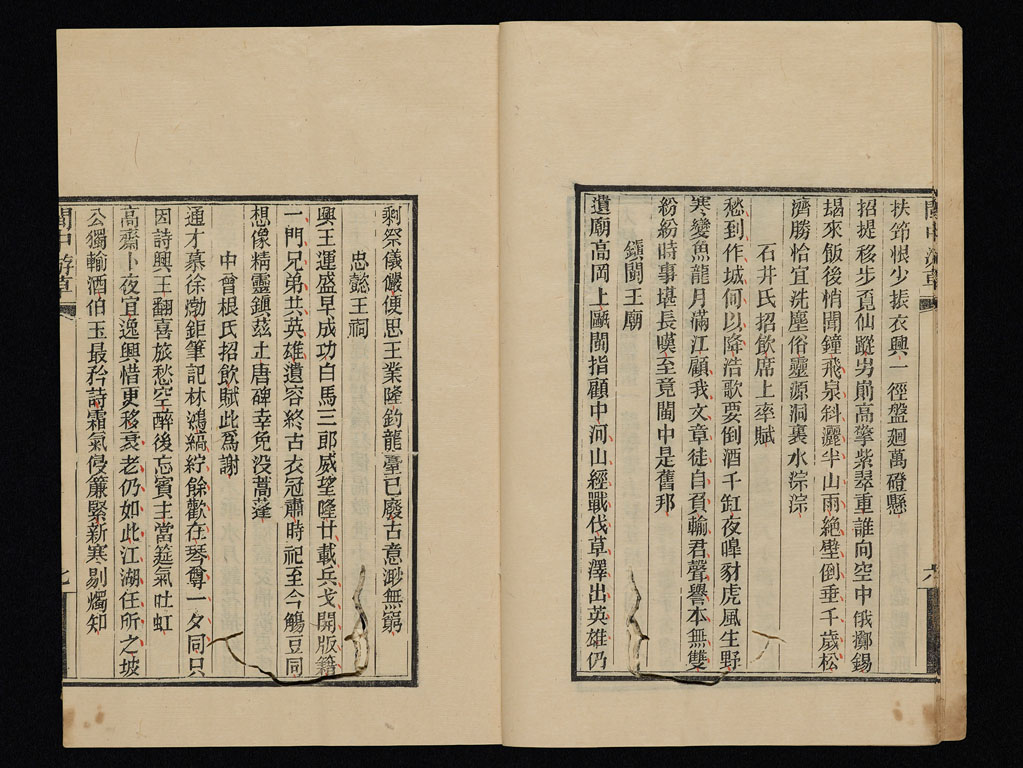 閩中游草
六
扶筇恨少振衣興一徑盤廻萬磴懸
招提移步覓仙蹤屴崱高擎紫翠重誰向空中俄擲錫
朅來飯後悄聞鐘飛泉斜灑半山雨絕壁倒垂千歲松
濟勝恰宜洗塵俗靈源洞裏水淙淙
石井氏招飲席上率賦
愁到作城何以降浩歌要倒酒千缸夜嘷豺虎風生野
寒變魚龍月滿江顧我文章徒自負輸君聲譽本無雙
紛紛時事堪長嘆至竟閩中是舊邦
鎭閩王廟
遺廟高岡上甌閩指顧中河山經戰伐草澤出英雄仍
剩祭儀儼便思王業隆釣龍臺已廢古意渺無窮
忠懿王祠
興王運盛早成功白馬三郎威望隆廿載兵戈開版籍
一門兄弟共英雄遺容終古衣冠肅時祀至今觴豆同
想像精靈鎭茲土唐碑幸免沒蒿蓬
中曾根氏招飲賦此爲謝
通才慕徐渤鉅筆記林鴻縞紵餘歡在琴尊一夕同只
因詩興王翻喜旅愁空醉後忘賓主當筵氣吐虹
高齋卜夜宜逸興惜更移衰老仍如此江湖任所之坡
公獨輸酒伯玉最矜詩霜氣侵簾緊新寒剔燭知
閩中游草
七